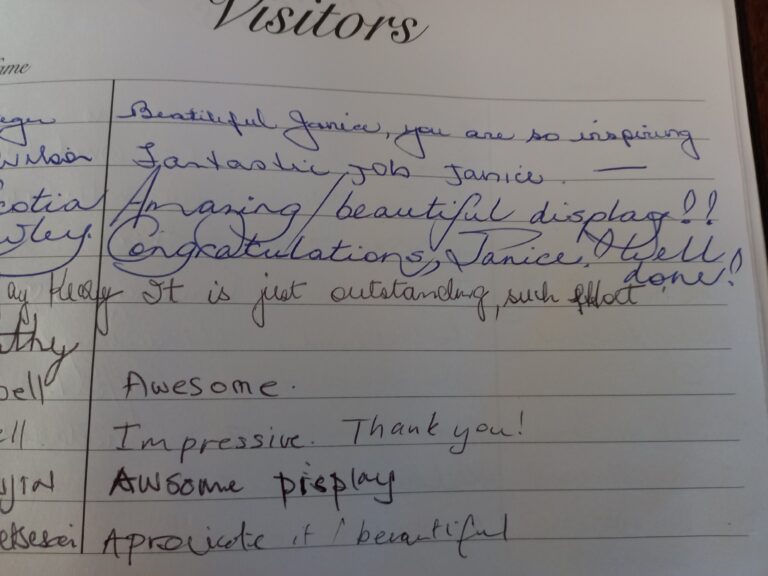 Visitors
ame
Beatiful Janice, you are so inspiring
Wilson Fantastic job Janice. —
cotia Amazing / beautiful display!!
wley. Congratulations, Janice. Well
done!
ay It is just outstanding, such effort
thy
bell Awesome.
ell Impressive. Thank you!
JIN Awsome Display
Aprovicate it / beautiful